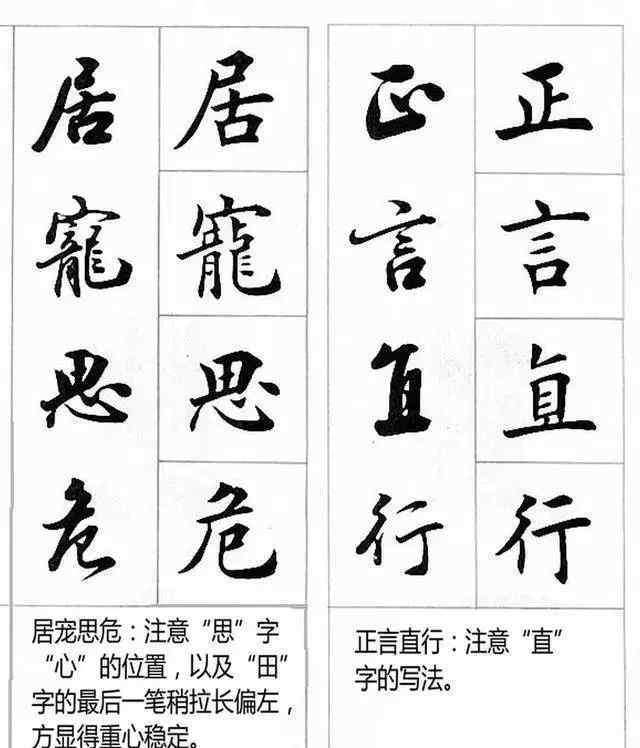 居 居
寵 寵
思 思
危 危
居宠思危：注意“思”字
“心”的位置，以及“田”
字的最后一笔稍拉长偏左，
方显得重心稳定。
正 正
言 言
直 直
行 行
正言直行：注意“直”
字的写法。